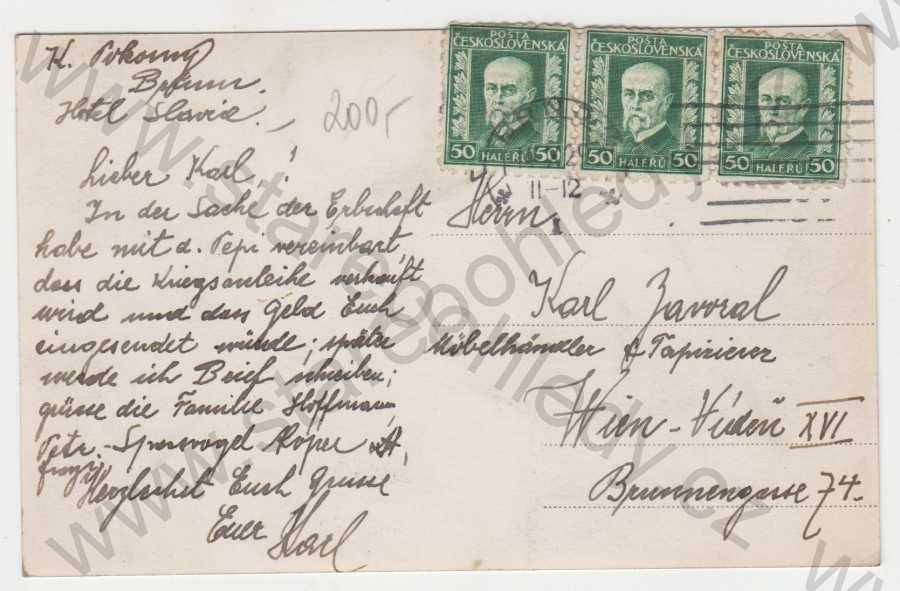 K. Pokorny
Brünn.
Hotel Slavia.
200,-
Lieber Karl!
In der Sache der Erbschaft
habe mit d. Pepi vereinbart,
dass die Kriegsanleihe verkauft
wird und dass Geld Euch
eingesendet würde; später
werde ich Brief schreiben;
grüsse die Familie Hoffmann,
Petr. Spassvogel
Herzlichst Euch Grüsse
Euer Karl
POŠTA
ČESKOSLOVENSKÁ
50 HALÉŘŮ 50
POŠTA
ČESKOSLOVENSKÁ
50 HALÉŘŮ 50
POŠTA
ČESKOSLOVENSKÁ
50 HALÉŘŮ 50
11-12
Herrn
Karl Zavoral
Möbelhändler & Tapezierer
Wien - Vídeň XVI
Brunnengasse 74.
www.starepohledy.cz
www.starepohledy.cz